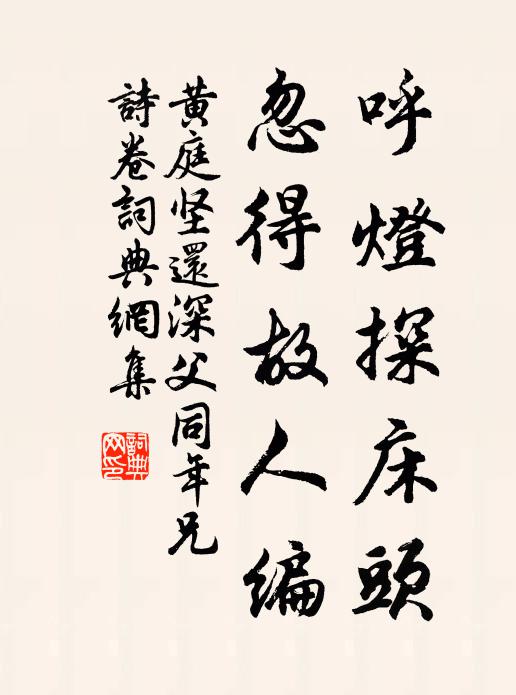 呼燈探床頭
忽得故人編
黄庭坚還深父同年兄
詩卷詞典網集
詞典
网印